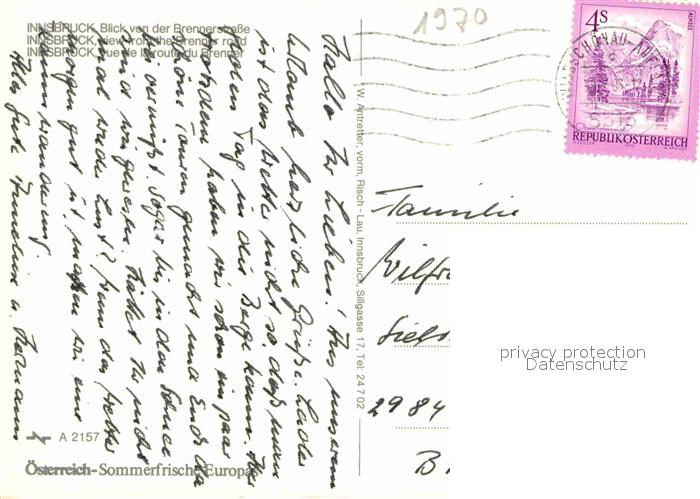 INNSBRUCK, Blick von der Brennerstraße
INNSBRUCK, view from the Brenner road
INNSBRUCK, vue de la route du Brenner
1970
4S
ALMSEE
REPUBLIK ÖSTERREICH
Hallo Ihr Lieben! Aus unserem
Urlaub herzliche Grüße. Leider
ist das Wetter nicht so, daß man
jeden Tag in die Berge kann.
trotzdem haben wir schon ein paar
schöne Touren gemacht und
Sogar bis in den Schnee
sind wir gewesen. Hättet Ihr nicht
mal wieder Lust? Wenn das Wetter
morgen gut ist, machen wir eine
Alles Gute
W. Antretter, vorm. Risch-Lau, Innsbruck, Sillgasse 17, Tel: 24 7 02
Familie
Wilfr
2984
B
privacy protection
Datenschutz
A 2157
Österreich-Sommerfrische Europas